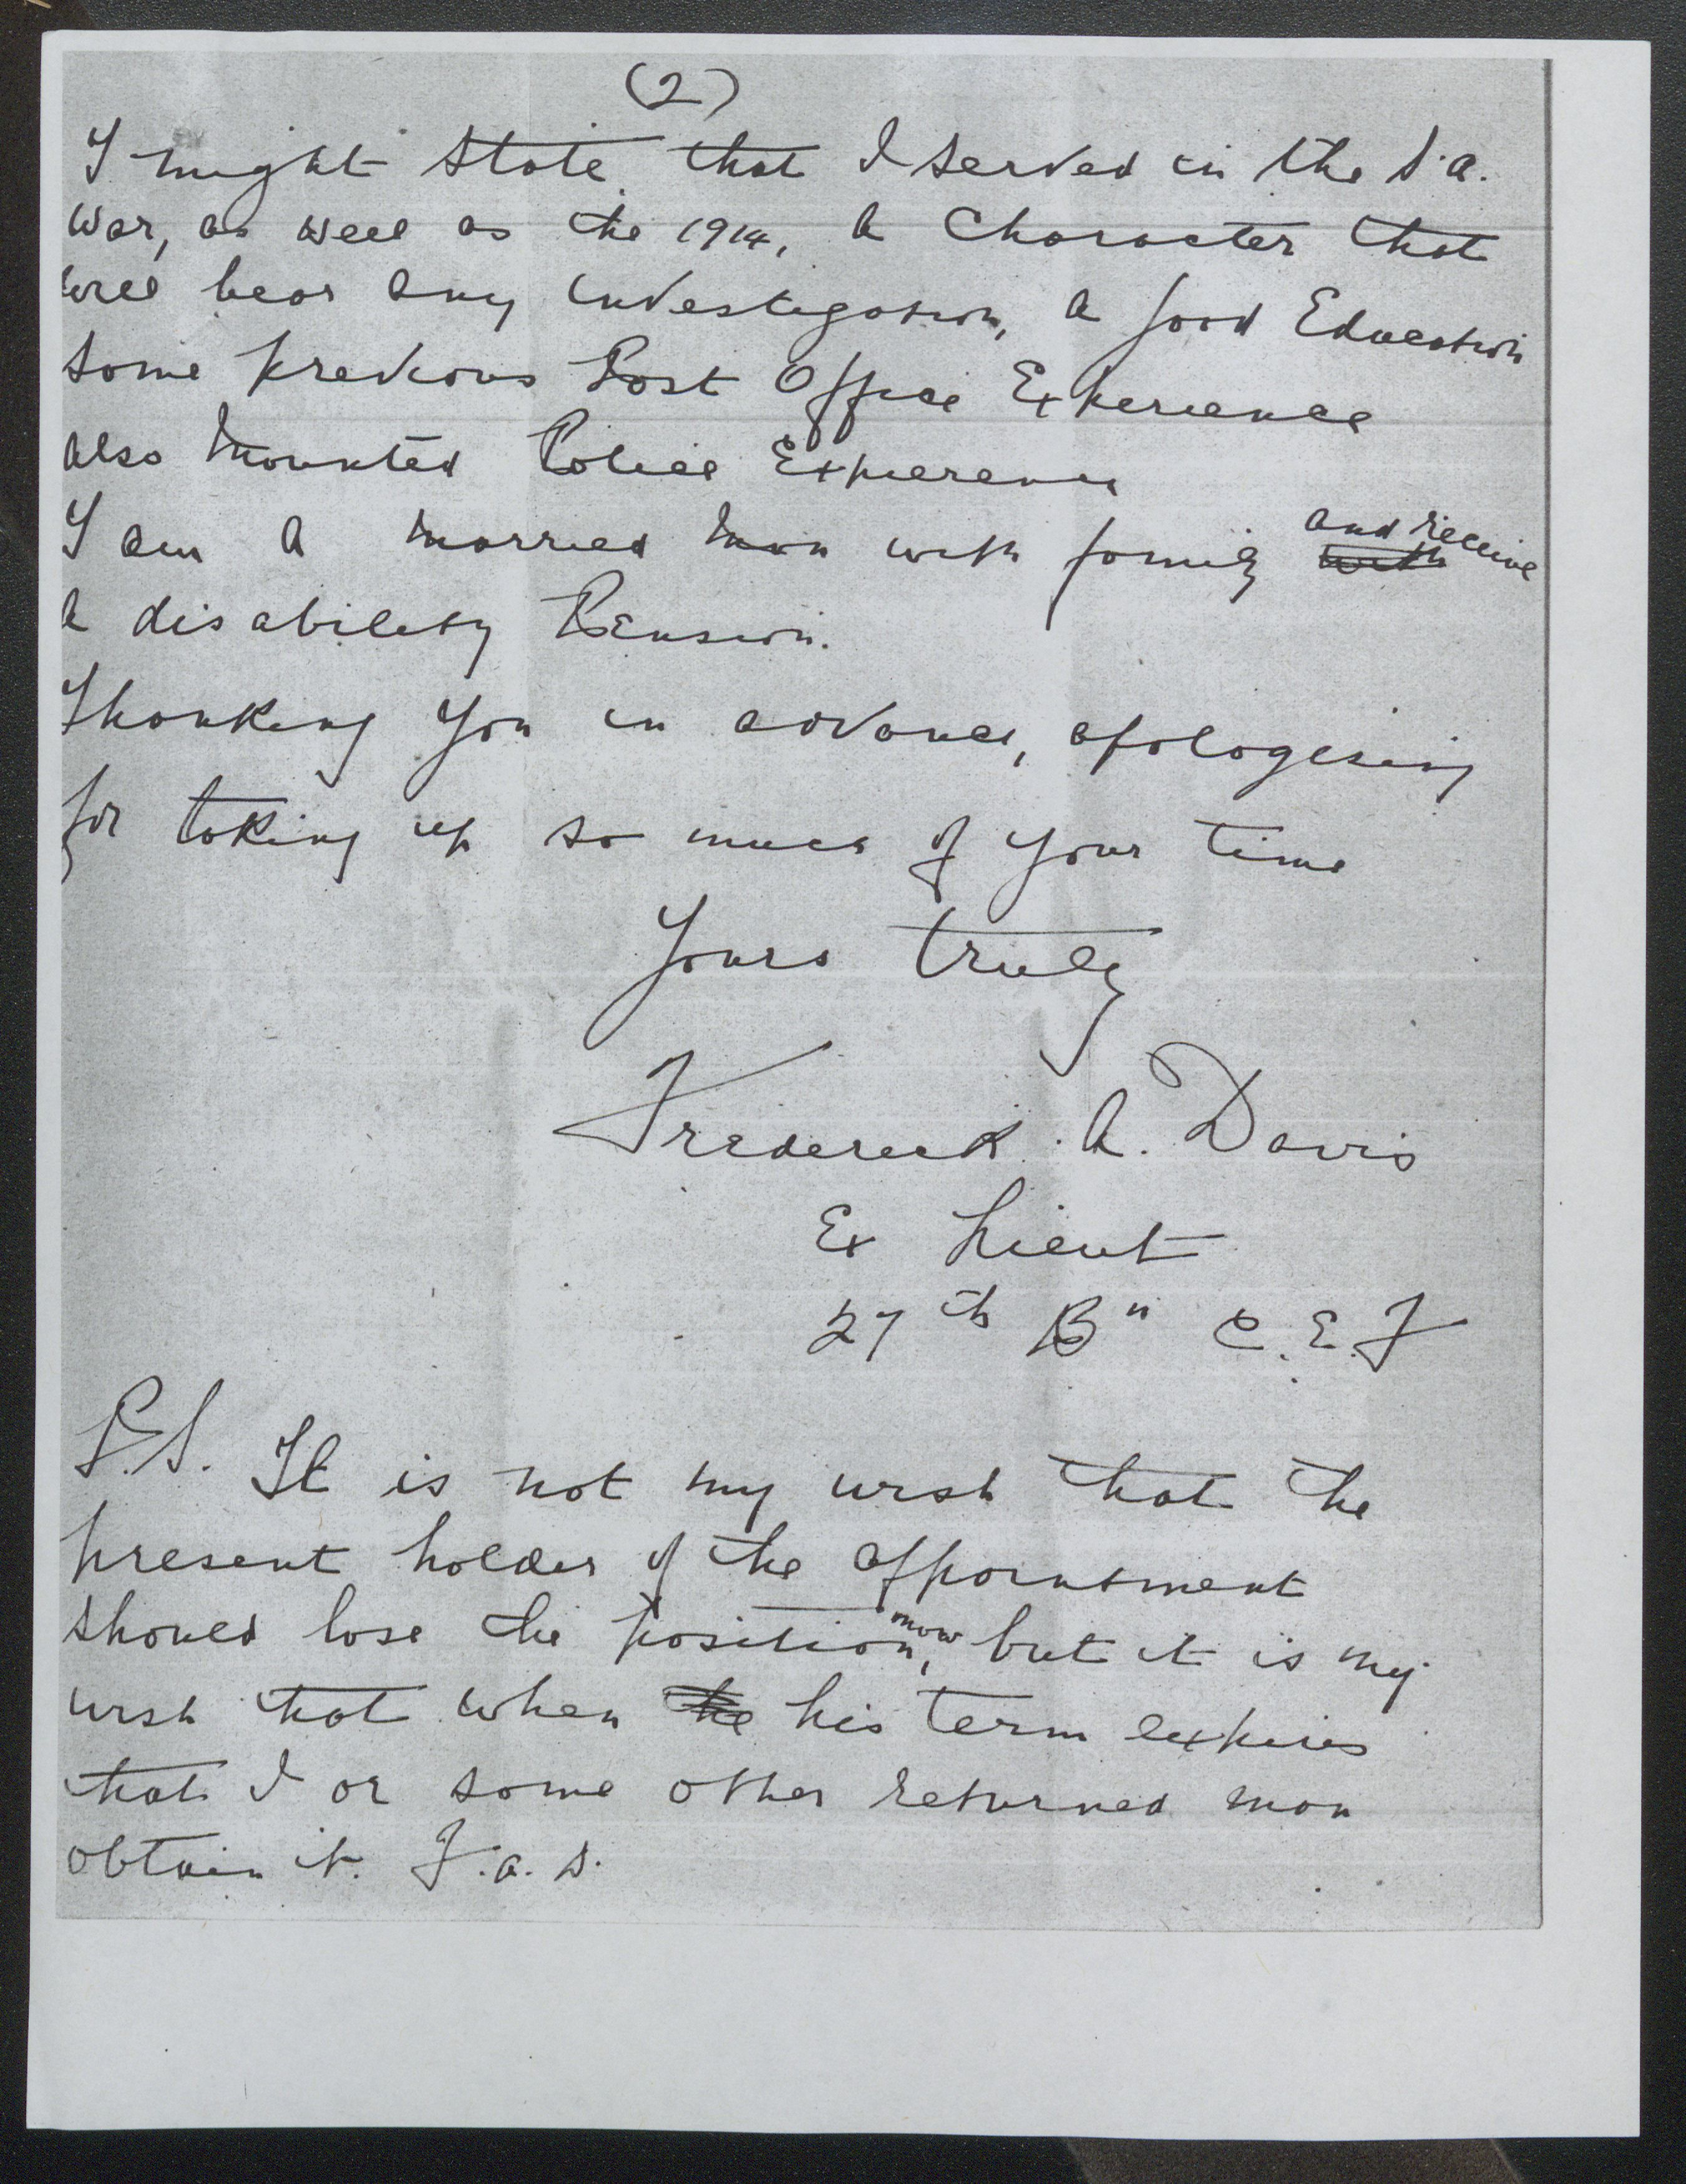 (2)
I might state that I served in the S.A.
War, as well as the 1914, a Character that
will bear any investigation, a good Education
some previous Post Office Experience
also Mounted Police Experience
I am a married man with family ~~with~~ and receive
a disability Pension.
Thanking you in advance, apologising
for taking up so much of your time
Yours truly
Frederick A. Davis
Ex Lieut
27th Bn C.E.F
P.S. It is not my wish that the
present holder of the appointment
should lose the position now, but it is my
wish that when ~~he~~ his term expires
that I or some other returned man
obtain it. F.A.D.